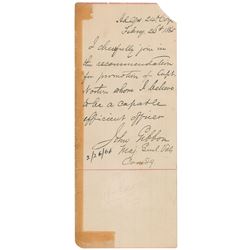 Hdqrs. 24th Corps
Febry. 26th 1865
I cheerfully join in
the recommendation
for promotion of Capt.
Norton whom I believe
to be a capable
efficient officer
John Gibbon
Maj. Genl. Vols
Comdg